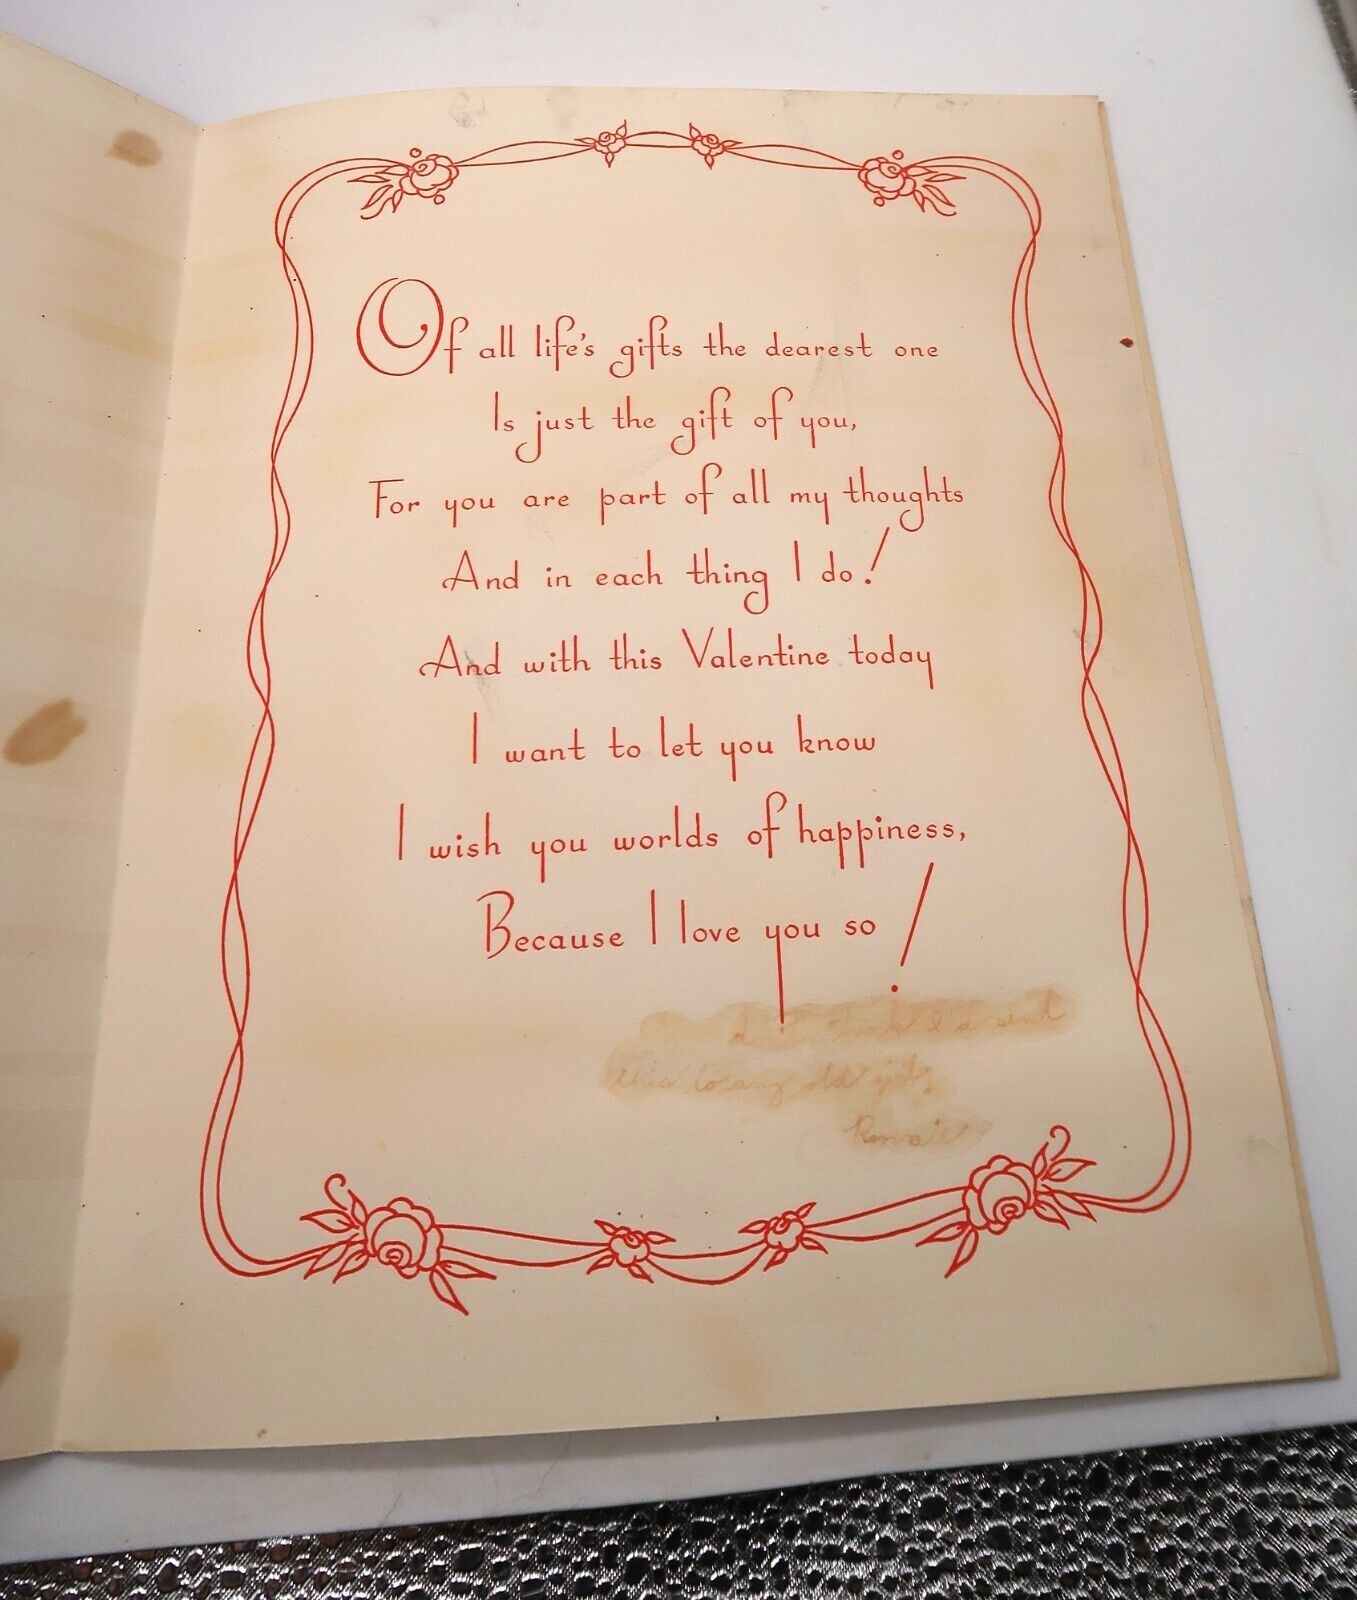 Of all life's gifts the dearest one
Is just the gift of you,
For you are part of all my thoughts
And in each thing I do!
And with this Valentine today
I want to let you know
I wish you worlds of happiness,
Because I love you so!
think I'd sent
this to any old girl,